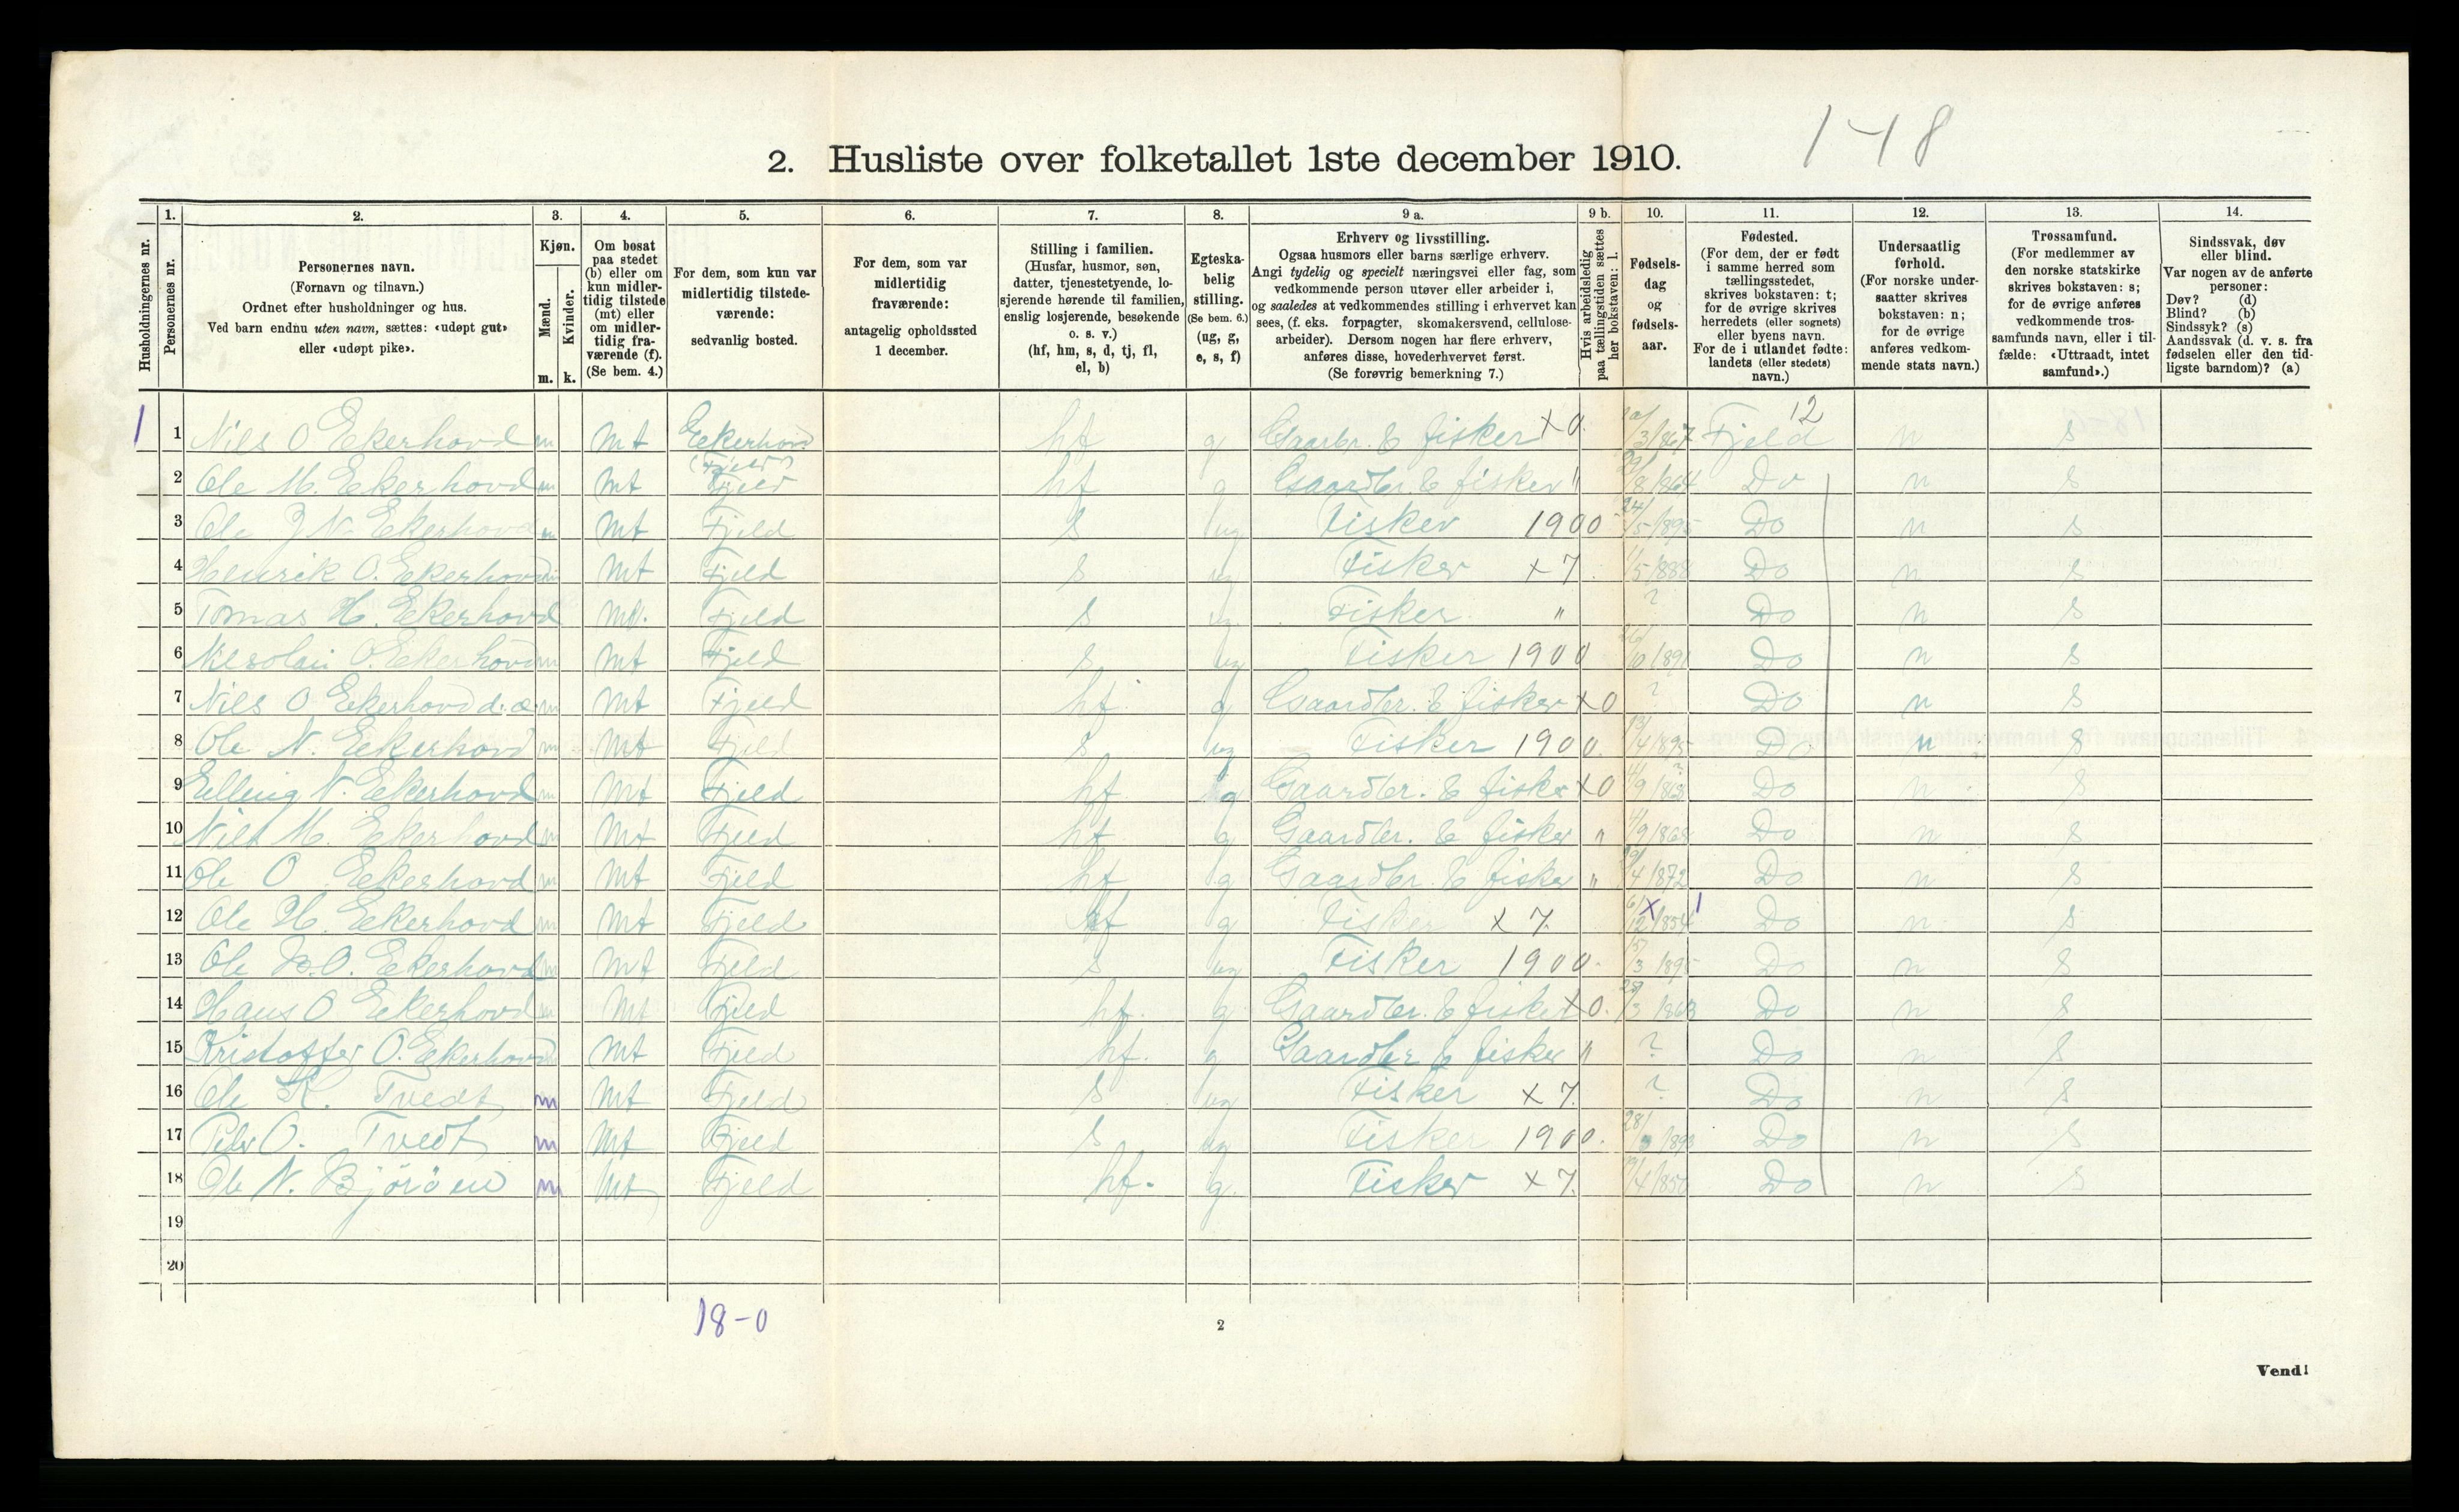 148
2. Husliste over folketallet 1ste december 1910.
Husholdningernes nr.
1. Personernes nr.
2. Personernes navn.
(Fornavn og tilnavn.)
Ordnet efter husholdninger og hus.
Ved barn endnu uten navn, sættes: «udøpt gut»
eller «udøpt pike».
3. Kjøn.
Mænd. m.
Kvinder. k.
4. Om bosat
paa stedet
(b) eller om
kun midler-
tidig tilstede
(mt) eller
om midler-
tidig fra-
værende (f).
(Se bem. 4.)
5. For dem, som kun var
midlertidig tilstede-
værende:
sedvanlig bosted.
6. For dem, som var
midlertidig
fraværende:
antagelig opholdssted
1 december.
7. Stilling i familien.
(Husfar, husmor, søn,
datter, tjenestetyende, lo-
sjerende hørende til familien,
enslig losjerende, besøkende
o. s. v.)
(hf, hm, s, d, tj, fl,
el, b)
8. Egteska-
belig
stilling.
(Se bem. 6.)
(ug, g,
e, s, f)
9 a. Erhverv og livsstilling.
Ogsaa husmors eller barns særlige erhverv.
Angi tydelig og specielt næringsvei eller fag, som
vedkommende person utøver eller arbeider i,
og saaledes at vedkommendes stilling i erhvervet kan
sees, (f. eks. forpagter, skomakersvend, cellulose-
arbeider). Dersom nogen har flere erhverv,
anføres disse, hovederhvervet først.
(Se forøvrig bemerkning 7.)
9 b. Hvis arbeidsledig
paa tællingstiden sættes
her bokstaven: l.
10. Fødsels-
dag
og
fødsels-
aar.
11. Fødested.
(For dem, der er født
i samme herred som
tællingsstedet,
skrives bokstaven: t;
for de øvrige skrives
herredets (eller sognets)
eller byens navn.
For de i utlandet fødte:
landets (eller stedets)
navn.)
12. Undersaatlig
forhold.
(For norske under-
saatter skrives
bokstaven: n;
for de øvrige
anføres vedkom-
mende stats navn.)
13. Trossamfund.
(For medlemmer av
den norske statskirke
skrives bokstaven: s;
for de øvrige anføres
vedkommende tros-
samfunds navn, eller i til-
fælde: «Uttraadt, intet
samfund».)
14. Sindssvak, døv
eller blind.
Var nogen av de anførte
personer:
Døv? (d)
Blind? (b)
Sindssyk? (s)
Aandssvak (d. v. s. fra
fødselen eller den tid-
ligste barndom)? (a)
12
1 1 Nils O Ekerhovd m mt Ekerhovd hf g Gaardbr. & fisker x 0. /3/867 Fjeld n s
(Fjeld)
2 Ole M. Ekerhovd m mt Fjeld hf g Gaardbr. & fisker " 29/8/864 Do n s
3 Ole N. Ekerhovd m mt Fjeld s ug Fisker 1900 24/5/895 Do n s
4 Henrik O. Ekerhovd m mt Fjeld s ug Fisker x 7. 11/5/888 Do n s
5 Tomas H. Ekerhovd mt. Fjeld s ug. Fisker " ? Do n s
6 Nilsolai O. Ekerhovd m mt Fjeld s ug Fisker 1900 /10/891 Do n s
7 Nils O Ekerhovd d.æ. m mt Fjeld hf. g Gaardbr. & fisker x 0 ? Do n s
8 Ole N. Ekerhovd m mt Fjeld s ug Fisker 1900. 13/4/895 Do n s
9 Elling N. Ekerhovd m mt Fjeld hf. g Gaardbr. & fisker x 0 /9/863 Do n s
10 Nils M. Ekerhovd m mt Fjeld hf g Gaardbr. & fisker " /9/868 Do n s
11 Ole O Ekerhovd m mt Fjeld hf g Gaardbr. & fisker " /4/872 Do n s
12 Ole H. Ekerhovd m mt Fjeld hf g Fisker x 7. 6/12/854 x 1 Do n s
13 Ole O. Ekerhovd m mt Fjeld s ug Fisker 1900. 15/3 1895 Do n s
14 Hans O Ekerhovd m mt Fjeld hf. g Gaardbr. & fisker x 0. /3 1863 Do n s
15 Kristoffer O. Ekerhovd m mt Fjeld hf. g Gaardbr & fisker " ? Do n s
16 Ole K. Tvedt m mt Fjeld s ug Fisker x 7. ? Do n s
17 Peder O. Tvedt m mt Fjeld s ug Fisker 1900. 28/ /893 Do n s
18 Ole N. Björöen m mt Fjeld hf. g. Fisker x 7. /4/850 Do n s
19
20
18-0
2
Vend!